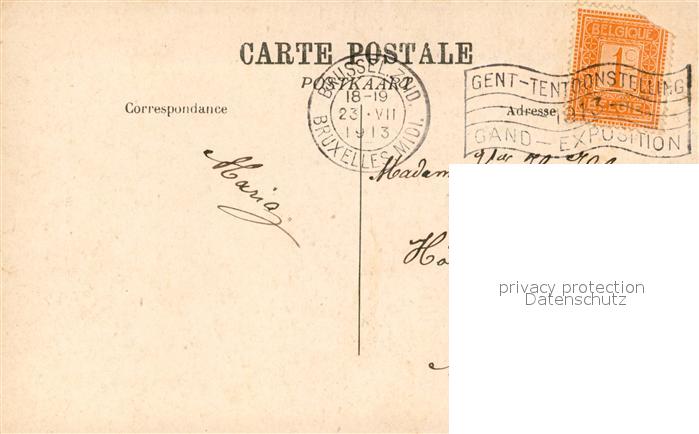 CARTE POSTALE
POSTKAART
Correspondance
Adresse
BRUSSEL-ZUID
18-19
23 · VII
1913
BRUXELLES-MIDI.
BELGIQUE
1c
BELGIË
GENT-TENTOONSTELLING
1913
GAND-EXPOSITION
Maria
Madam
privacy protection
Datenschutz